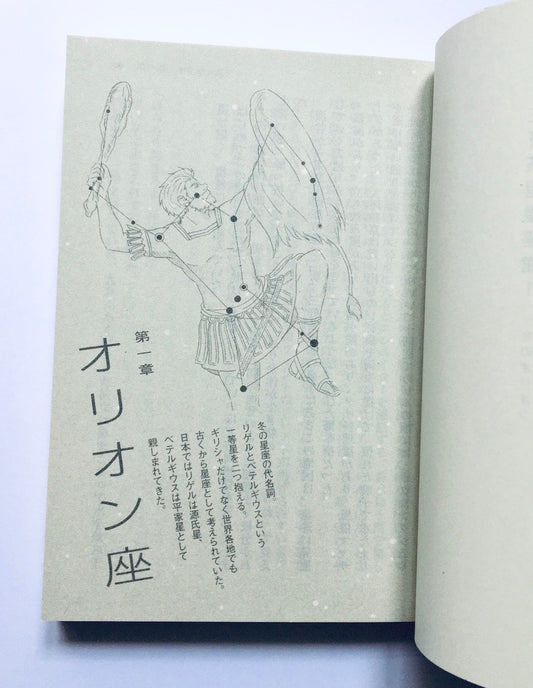 第一章
オリオン座
冬の星座の代名詞
リゲルとベテルギウスという
一等星を二つ抱える。
ギリシャだけでなく世界各地でも
古くから星座として考えられていた。
日本ではリゲルは源氏星、
ベテルギウスは平家星として
親しまれてきた。